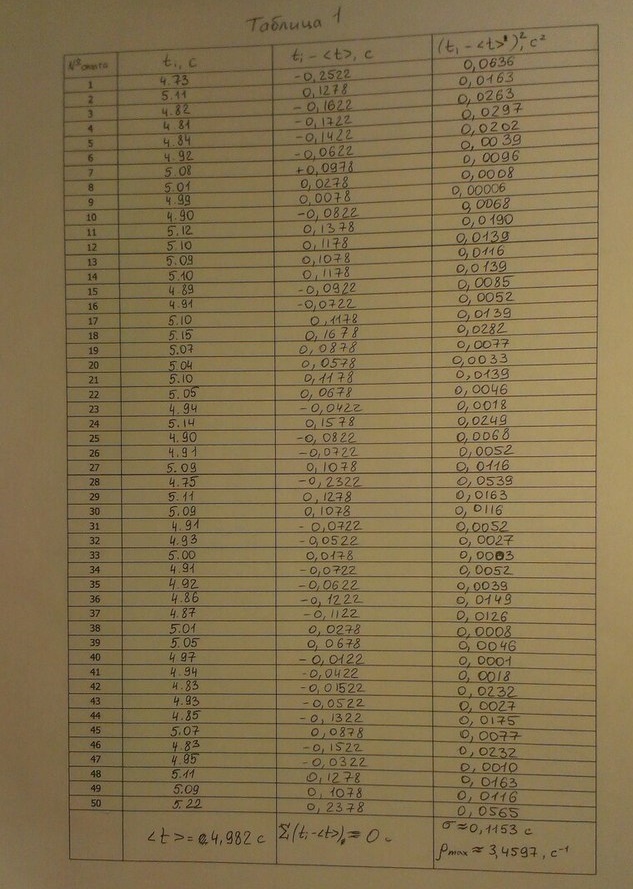 Таблица 1
№ опыта tᵢ, с tᵢ - <t>, с (tᵢ - <t>)², с²
1 4.73 -0,2522 0,0636
2 5.11 0,1278 0,0163
3 4.82 -0,1622 0,0263
4 4.81 -0,1722 0,0297
5 4.84 -0,1422 0,0202
6 4.92 -0,0622 0,0039
7 5.08 +0,0978 0,0096
8 5.01 0,0278 0,0008
9 4.99 0,0078 0,00006
10 4.90 -0,0822 0,0068
11 5.12 0,1378 0,0190
12 5.10 0,1178 0,0139
13 5.09 0,1078 0,0116
14 5.10 0,1178 0,0139
15 4.89 -0,0922 0,0085
16 4.91 -0,0722 0,0052
17 5.10 0,1178 0,0139
18 5.15 0,1678 0,0282
19 5.07 0,0878 0,0077
20 5.04 0,0578 0,0033
21 5.10 0,1178 0,0139
22 5.05 0,0678 0,0046
23 4.94 -0,0422 0,0018
24 5.14 0,1578 0,0249
25 4.90 -0,0822 0,0068
26 4.91 -0,0722 0,0052
27 5.09 0,1078 0,0116
28 4.75 -0,2322 0,0539
29 5.11 0,1278 0,0163
30 5.09 0,1078 0,0116
31 4.91 -0,0722 0,0052
32 4.93 -0,0522 0,0027
33 5.00 0,0178 0,0003
34 4.91 -0,0722 0,0052
35 4.92 -0,0622 0,0039
36 4.86 -0,1222 0,0149
37 4.87 -0,1122 0,0126
38 5.01 0,0278 0,0008
39 5.05 0,0678 0,0046
40 4.97 -0,0122 0,0001
41 4.94 -0,0422 0,0018
42 4.83 -0,01522 0,0232
43 4.93 -0,0522 0,0027
44 4.85 -0,1322 0,0175
45 5.07 0,0878 0,0077
46 4.83 -0,1522 0,0232
47 4.95 -0,0322 0,0010
48 5.11 0,1278 0,0163
49 5.09 0,1078 0,0116
50 5.22 0,2378 0,0565
<t> = 4,982 с Σ(tᵢ-<t>) = 0 с σ ≈ 0,1153 с
ρmax ≈ 3,4597, с⁻¹